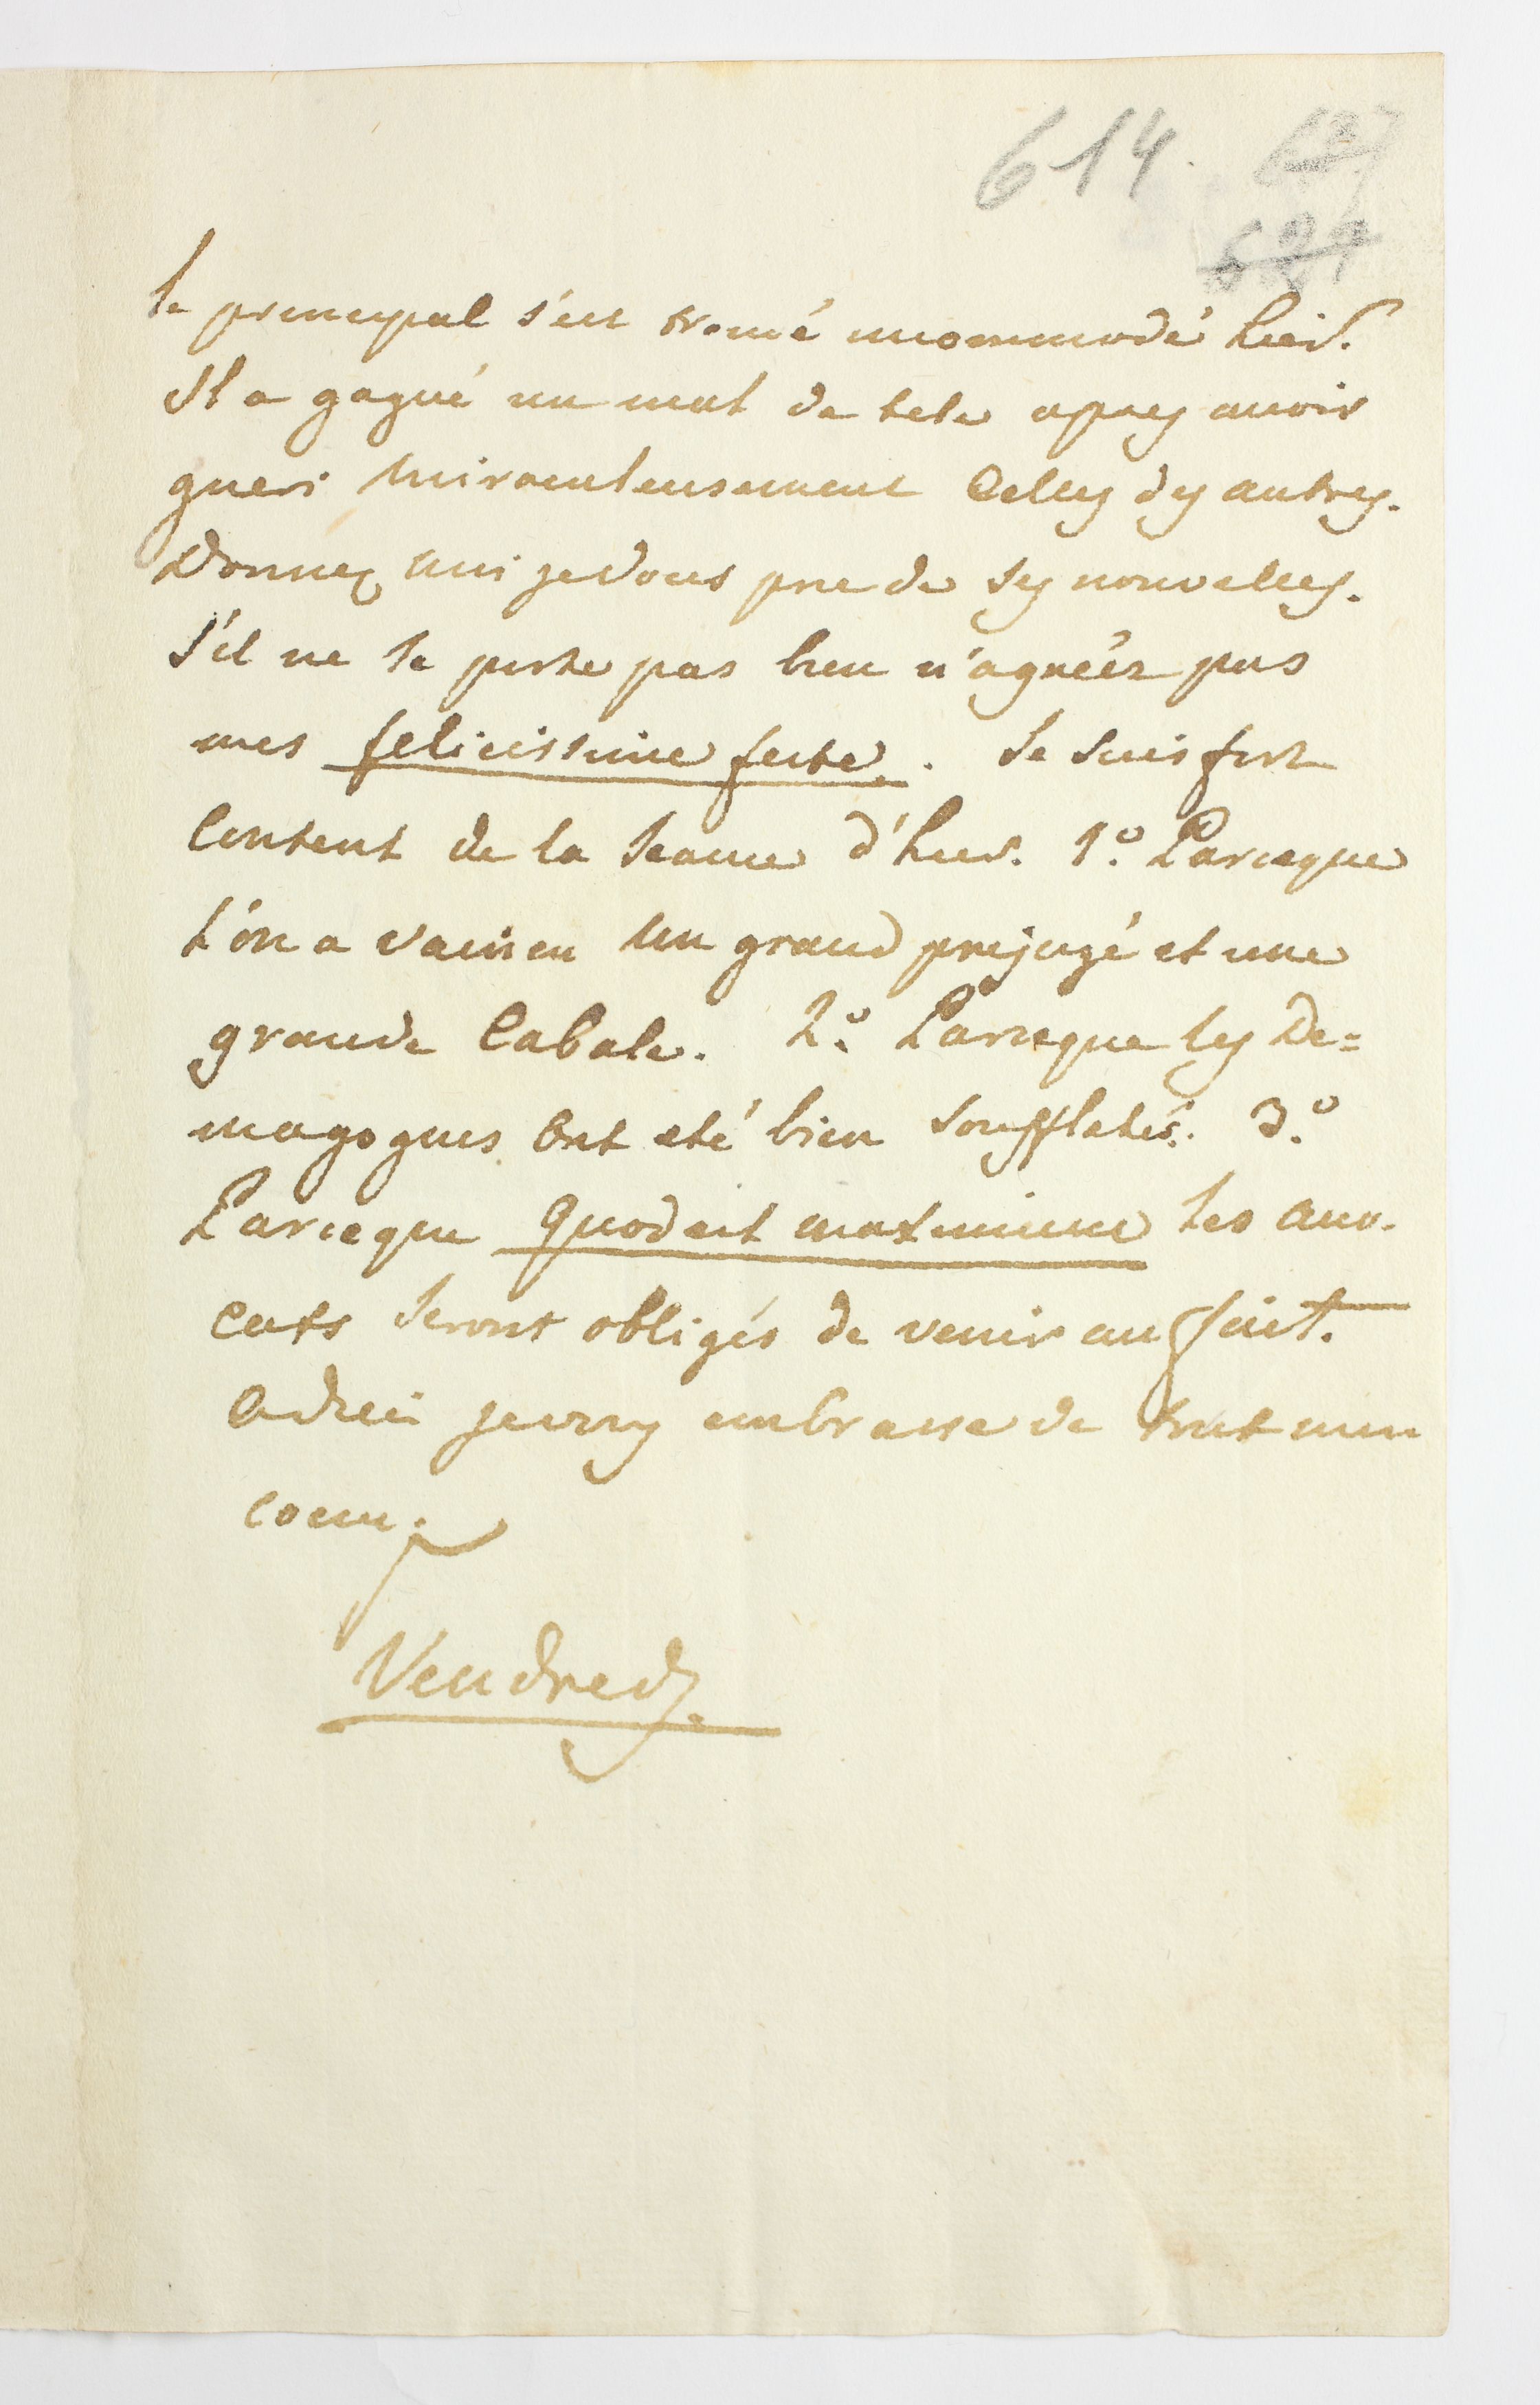 614. 627
627
le principal s'est trouvé incommodé hier.
Il a gagné un mal de tete apres avoir
gueri miraculeusement celles des autres.
Donnez moi je vous prie de ses nouvelles.
S'il ne se porte pas bien n'agréés pas
mes felicissime feste. Je suis fort
content de la seance d'hier. 1.° Parceque
l'on a vaincu un grand prejugé et une
grande cabale. 2.° Parceque les De=
magogues ont eté bien souffletés. 3.°
Parceque quod est maximum les avo-
cats seront obligés de venir au fait.
adieu je vous embrasse de tout mon
coeur.
Vendredy.